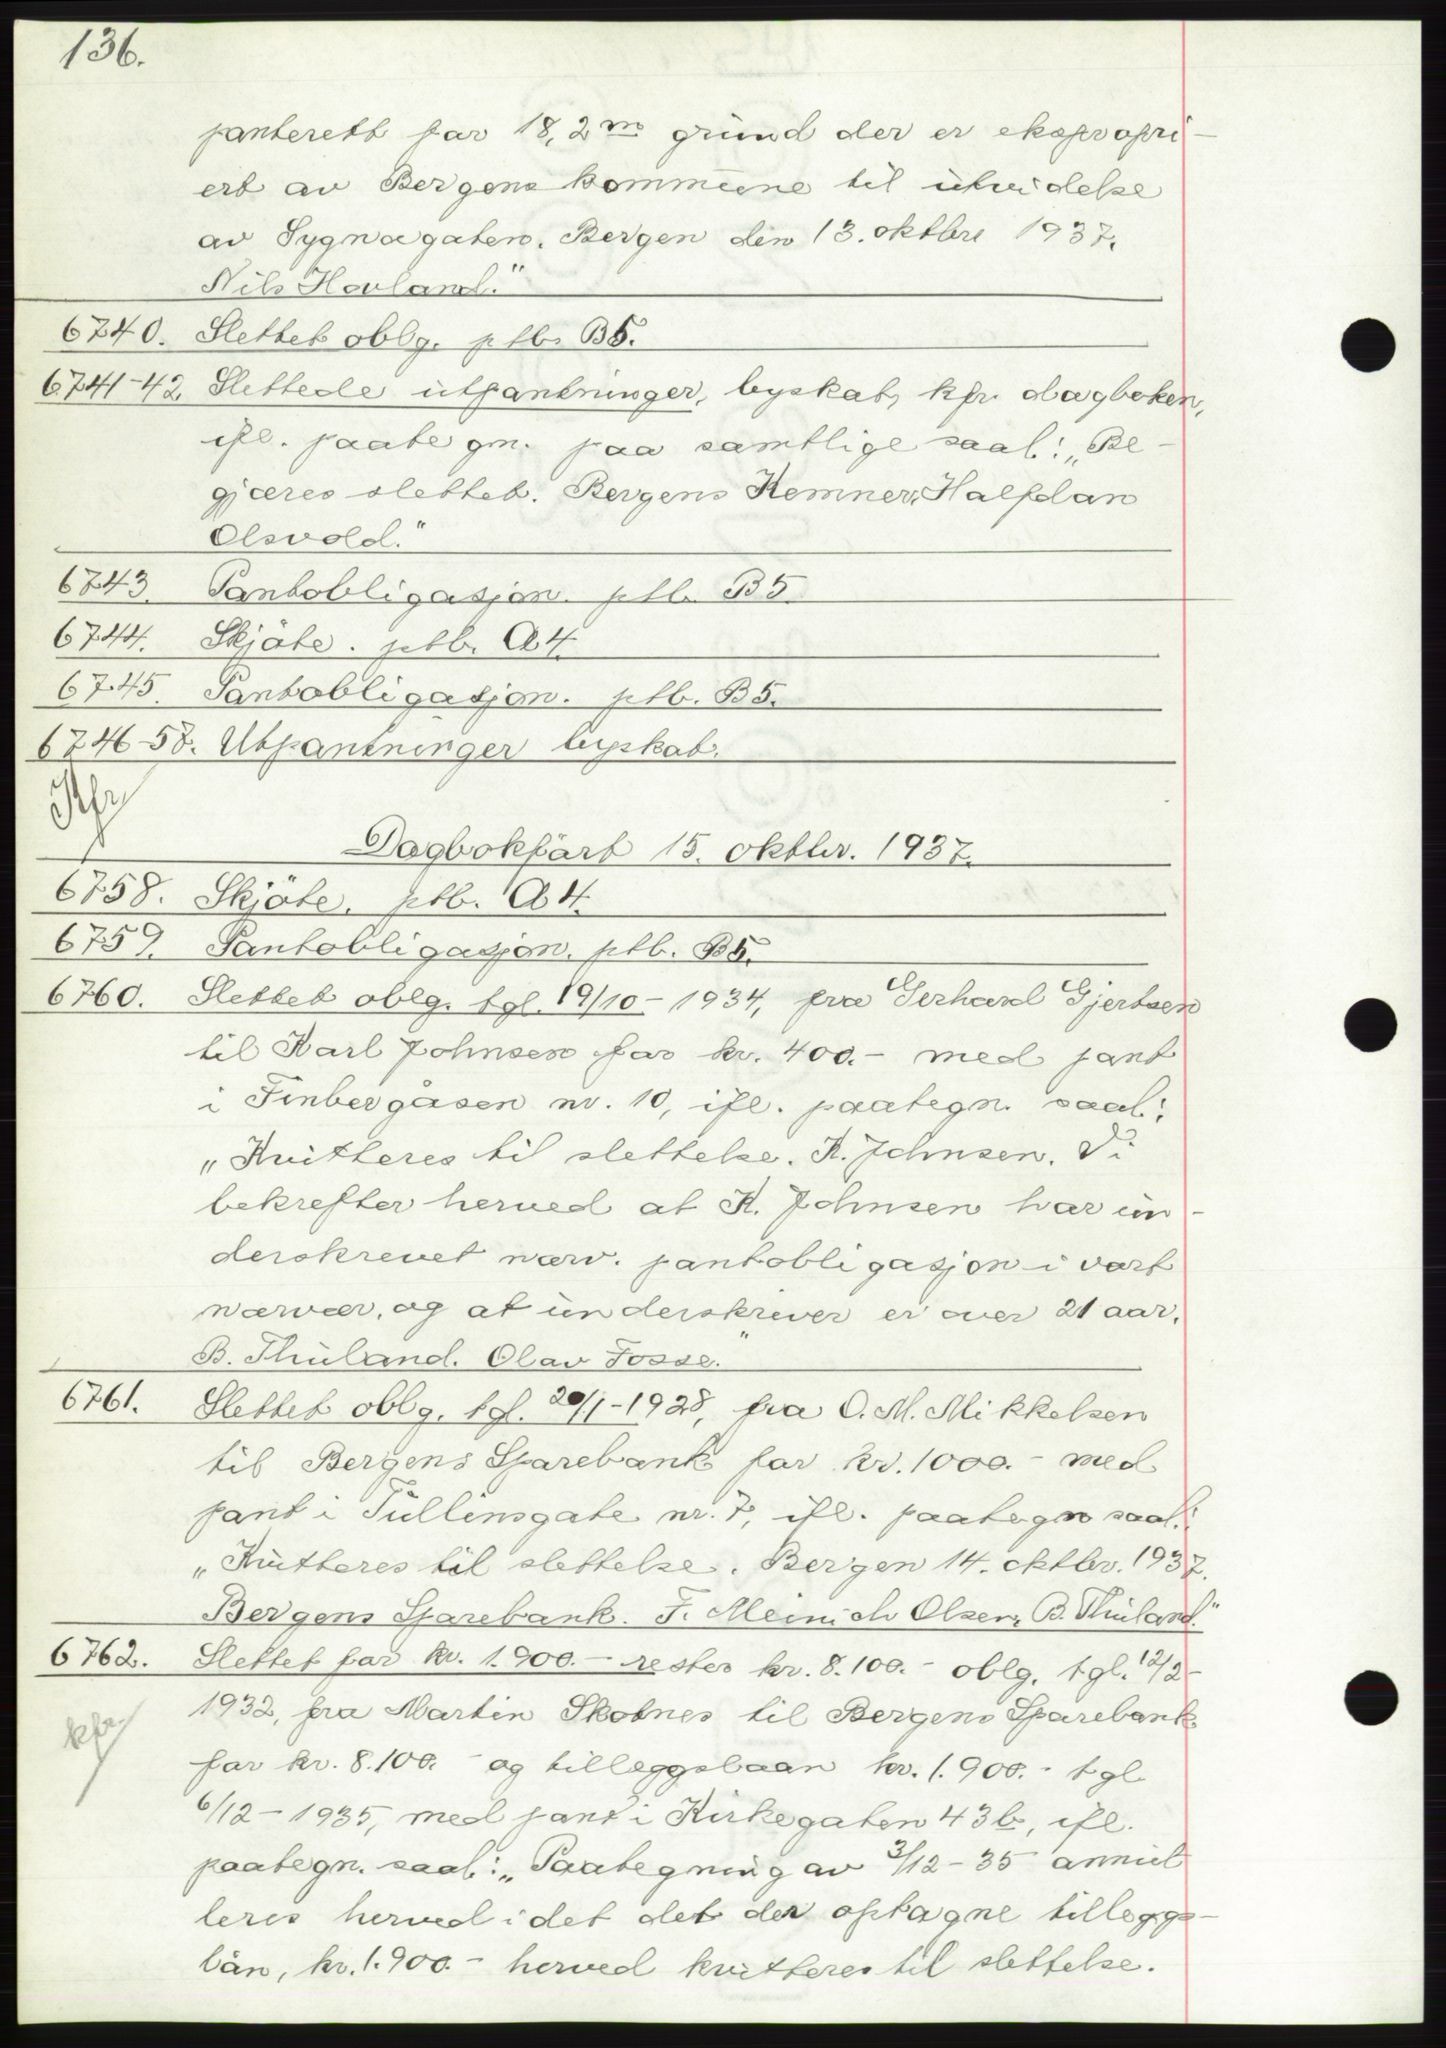 136.
panterett for 18,2 m grund der er ekspropri-
ert av Bergens kommune til utvidelse
av Sygnagaten. Bergen den 13. oktbr 1937.
Nils Hovland."
6740. Slettet oblg. ptb. B5.
6741-42. Slettede utpantninger, byskat, kfr. dagboken,
ifl. paategn. paa samtlige saal.: „Be-
gjæres slettet. Bergens Kemner, Halfdan
Olsvold."
6743. Pantobligasjon. ptb. B5.
6744. Skjöte. ptb. A4.
6745. Pantobligasjon. ptb. B5.
6746-57. Utpantninger byskat.
Kfr
Dagbokfört 15. oktbr. 1937.
6758. Skjöte. ptb. A4.
6759. Pantobligasjon. ptb. B5.
6760. Slettet oblg. tgl. 19/10-1934, fra Gerhard Gjertsen
til Karl Johnsen for kr. 400.- med pant
i Finbergåsen nr. 10, ifl. paategn. saal.:
„Kvitteres til slettelse. K. Johnsen. Vi
bekrefter herved at K. Johnsen har un-
derskrevet nærv. pantobligasjon i vort
nærvær, og at underskriver er over 21 aar.
B. Thuland. Olav Fosse."
6761. Slettet oblg. tgl. 20/1-1928, fra O. M. Mikkelsen
til Bergens Sparebank for kr. 1000.- med
pant i Tullinsgate nr. 7, ifl. paategn saal.:
„Kvitteres til slettelse. Bergen 14. oktbr. 1937.
Bergens Sparebank. F. Meinich Olsen, B. Thuland."
6762. Slettet for kr. 1.900.- rester kr. 8.100.- oblg. tgl. 12/2-
1932, fra Martin Skotnes til Bergens Sparebank
kfr.
for kr. 8.100.- og tilleggslaan kr. 1.900.- tgl.
6/12-1935, med pant i Kirkegaten 43b, ifl.
paategn. saal.: „Paategning av 3/12-35 annul
leres herved idet det der optagne tilleggs-
lån, kr. 1.900.- herved kvitteres til slettelse.